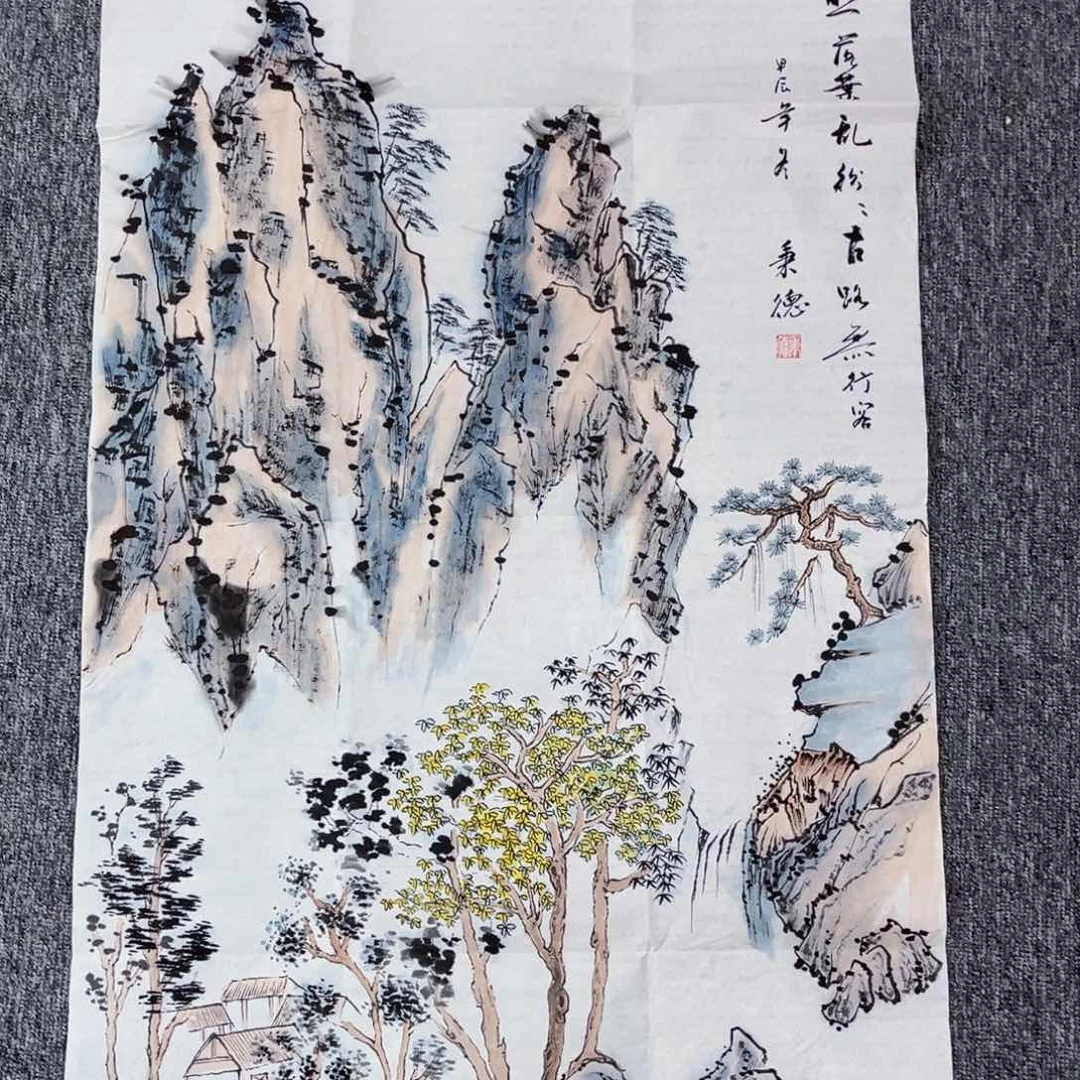 落葉乱紛〻古路無行客
甲辰年冬 秉德